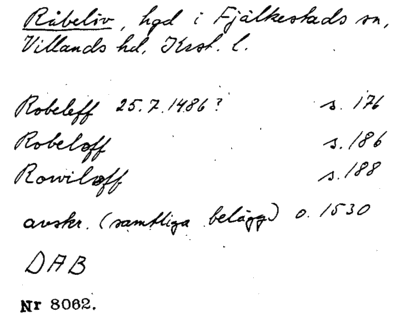 Råbelöv, hgd i Fjälkestads sn,
Villands hd, Krst. l.
Robeleff 25.7.1486? s. 176
Robeloff s. 186
Rowilæff s. 188
avskr. (samtliga belägg) o. 1530
DAB
Nr 8062.